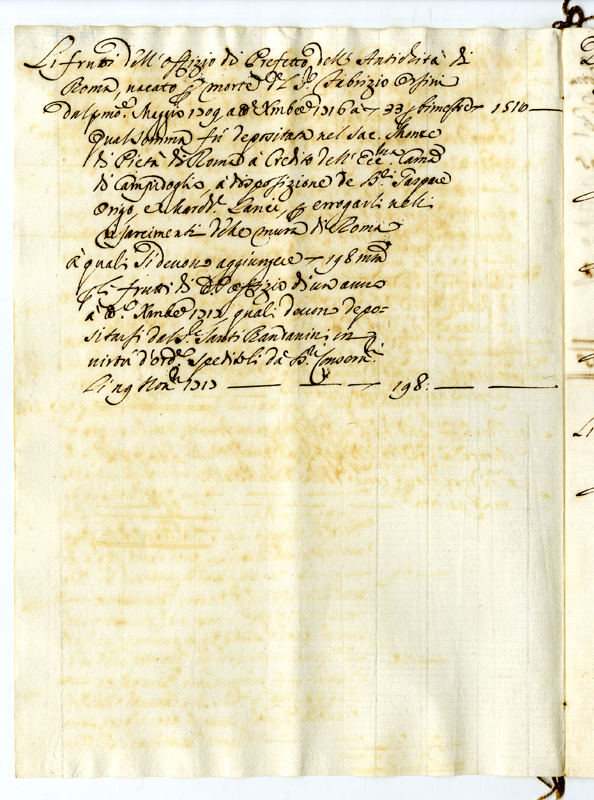 Li frutti dell'Offizio di Prefetto dell'Antichità di
Roma, vacato p morte del Sr. Fabrizio Orsini
dal pmo. Maggio 1709 a di Xmbre 1716 a 33 p bimestre 1510
Qual somma fu depositata nel Sac. Monte
di Pietà di Roma a Credito dell' Ecc.ma Camà
di Campidoglio, a disposizione de Sri. Gaspare
Origo, e Lanci, p erogarli nelli
risarcimenti delle mura di Roma
a quali si devono aggiungere 198 mtà
p li frutti di do. offizio di un anno
a di Xmbre 1717 quali devono depo-
sitarsi dal Sr. Santi Randanini in
virtù d'ordi. speditoli da Sri. Conserri.
Li 19 Nore. 1717 198: